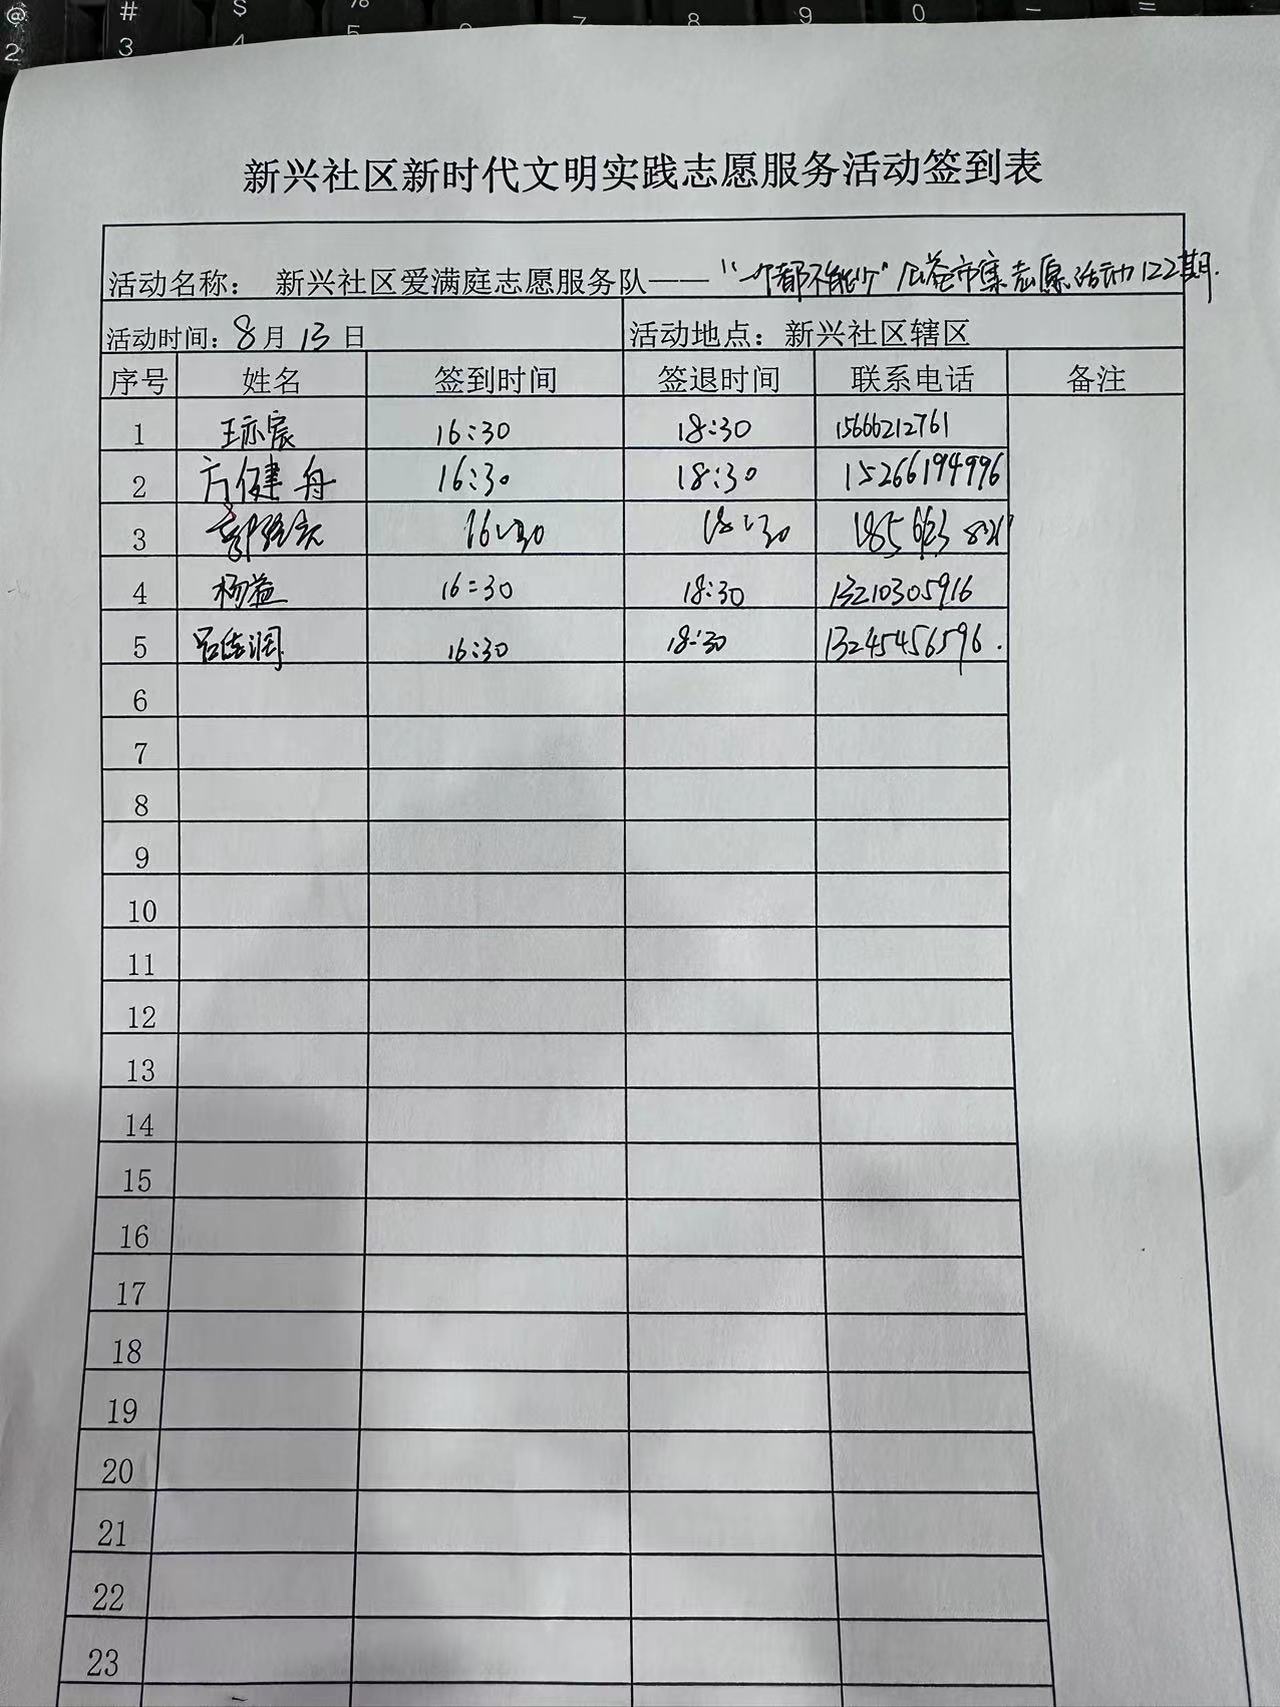 @ # $ % 7 8 9 0 - =
2 3 4 5
新兴社区新时代文明实践志愿服务活动签到表
活动名称： 新兴社区爱满庭志愿服务队——“一个都不能少”公益市集志愿活动122期.
活动时间：8月13日 活动地点：新兴社区辖区
序号 姓名 签到时间 签退时间 联系电话 备注
1 王亦宸 16:30 18:30 15666212761
2 方健舟 16:30 18:30 15266194996
3 16:30 18:30
4 杨益 16:30 18:30 13210305916
5 16:30 18:30 13245456596.
6
7
8
9
10
11
12
13
14
15
16
17
18
19
20
21
22
23